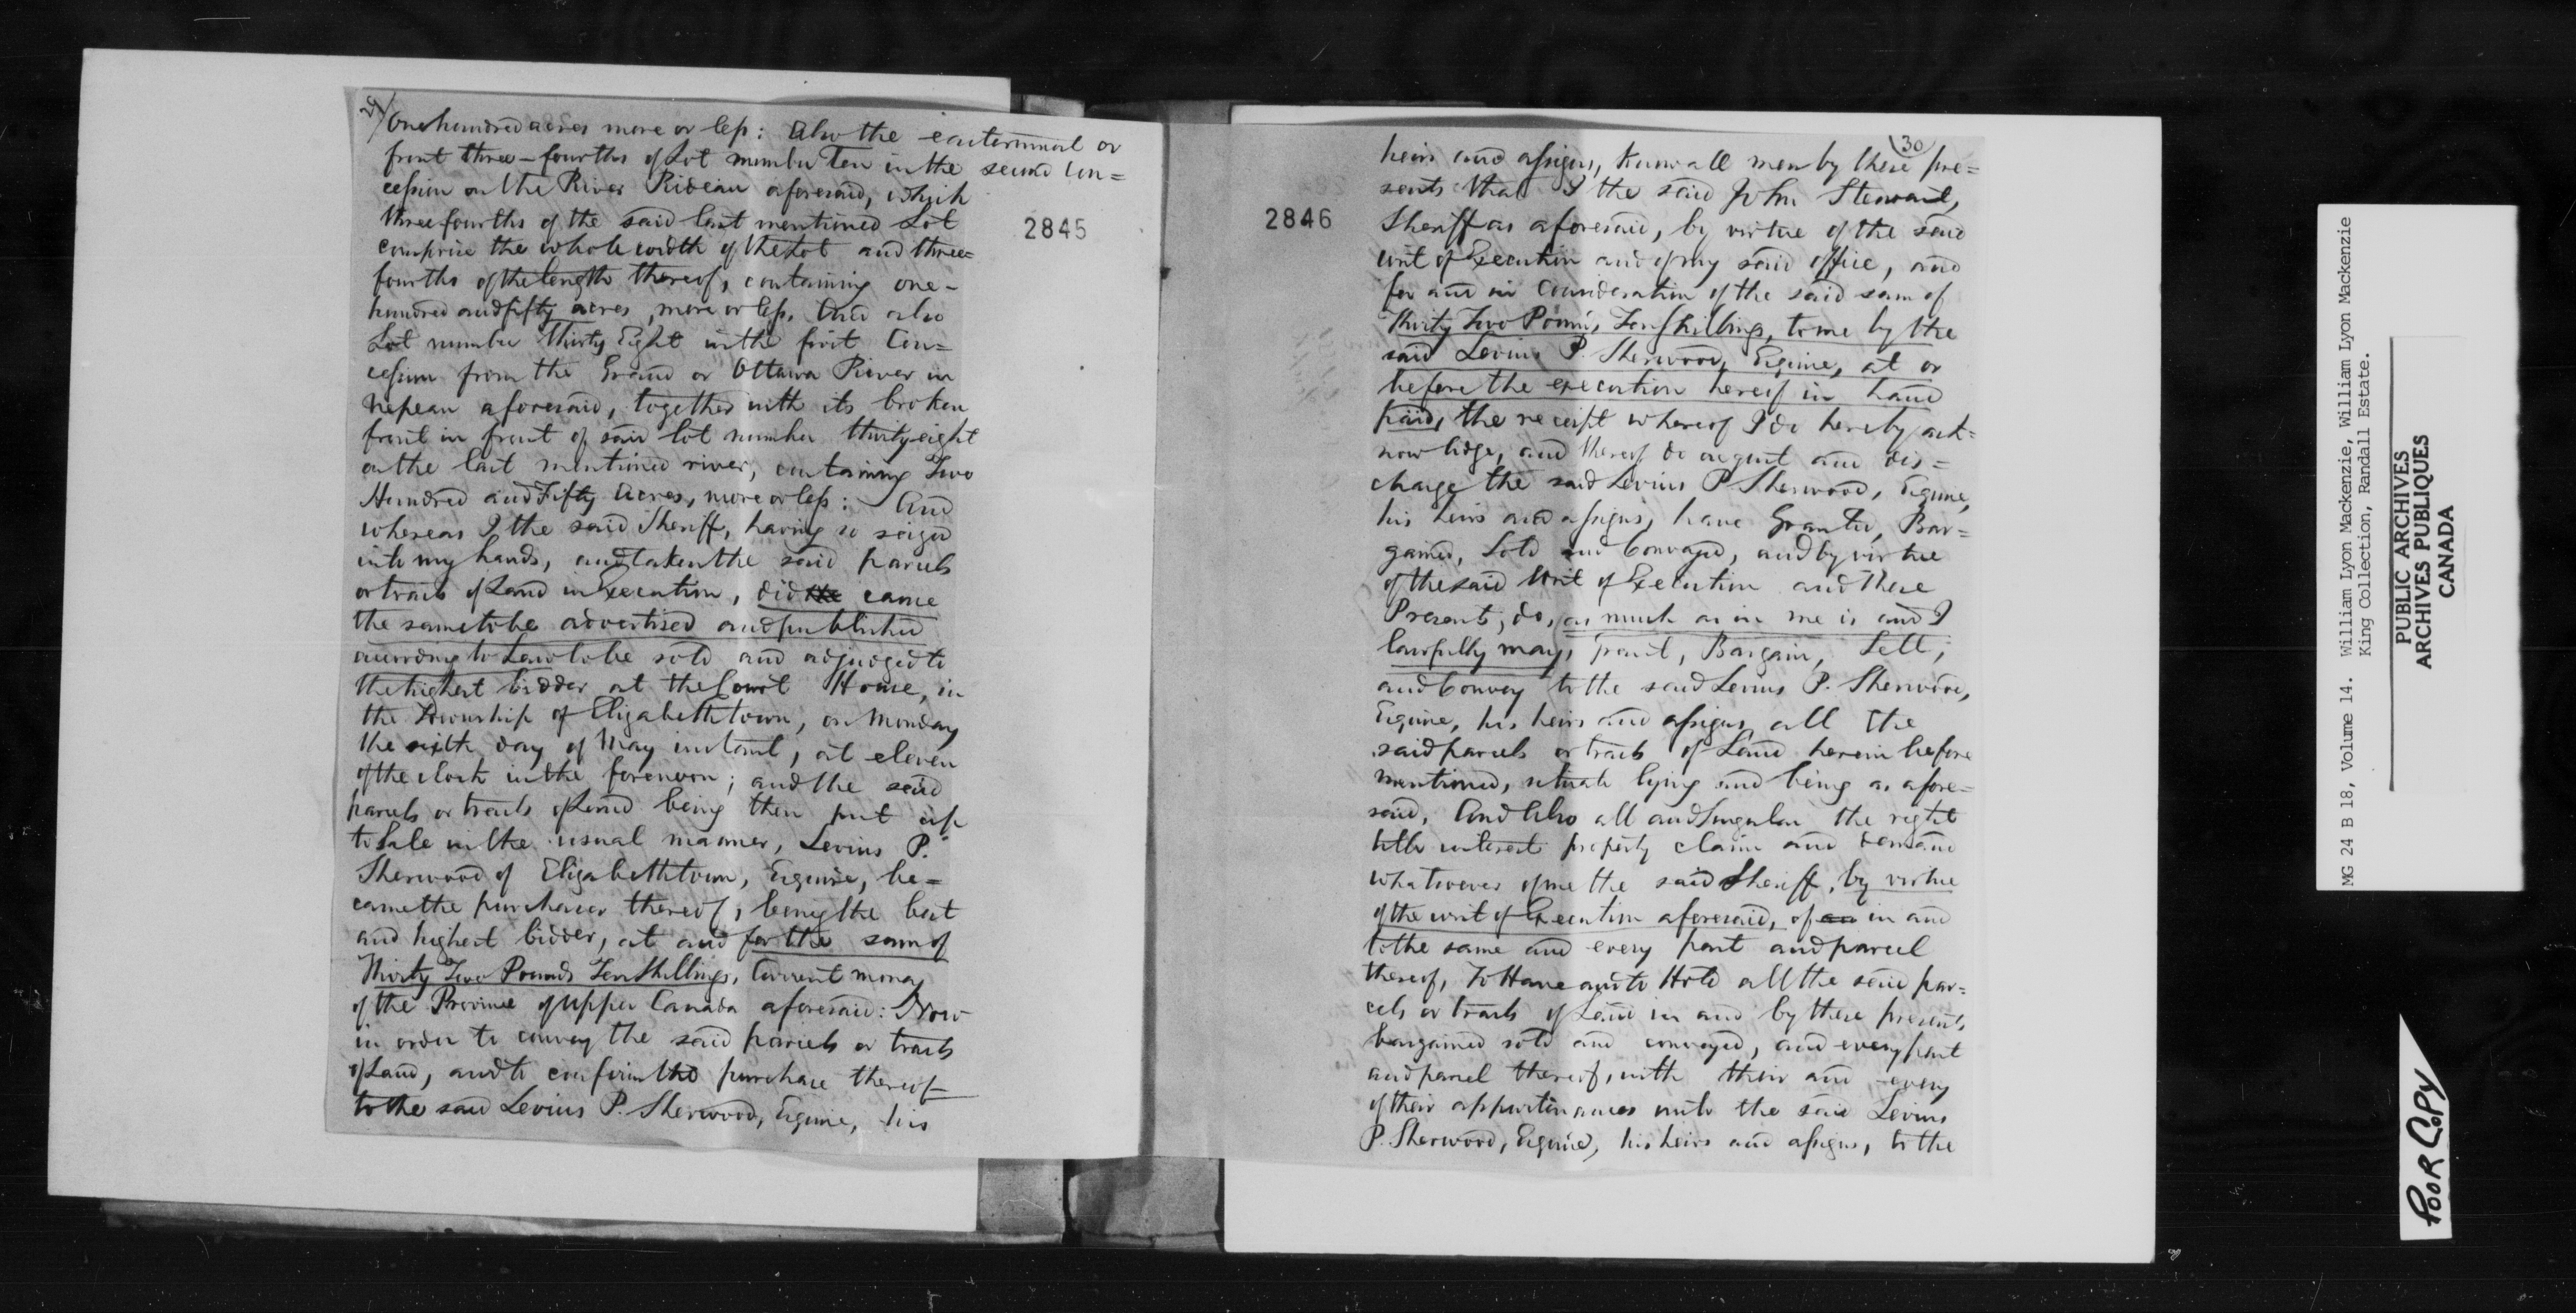 29/
One hundred acres more or less: Also the easternmost or
front three-fourths of Lot number Ten in the second Con=
cession on the River Rideau aforesaid, which
three fourths of the said last mentioned Lot
comprise the whole width of the Lot and three=
fourths of the length thereof, containing one-
hundred and fifty acres, more or less. And also
Lot number thirty Eight in the first Con=
cession from the Grand or Ottawa River in
Nepean aforesaid, together with its broken
front in front of said lot number thirty-eight
on the last mentioned river, containing Two
Hundred and Fifty Acres, more or less: And
whereas I the said Sheriff, having so seized
into my hands, and taken the said parcels
or tracts of Land in Execution, did the cause
the same to be advertised and published
according to Law to be sold and adjudged to
the highest bidder at the Court House, in
the Township of Elizabethtown, on Monday
the sixth day of May instant, at eleven
of the clock in the forenoon; and the said
parcels or tracts of Land being then put up
to Sale in the usual manner, Levius P.
Sherwood of Elizabethtown, Esquire, be=
came the purchaser thereof, being the best
and highest bidder, at and for the sum of
Thirty Two Pounds Ten Shillings, Current money
of the Province of Upper Canada aforesaid: Now
in order to convey the said parcels or tracts
of Land, and to confirm the purchase thereof
to the said Levius P. Sherwood, Esquire, his
2845
2846
(30
heirs and assigns, Know all men by these pre=
sents that I the said John Stewart,
Sheriff as aforesaid, by virtue of the said
writ of Execution and of my said office, and
for and in Consideration of the said sum of
Thirty Two Pounds, Ten Shillings, to me by the
said Levius P. Sherwood, Esquire, at or
before the execution hereof in hand
paid, the receipt whereof I do hereby ack=
nowledge, and thereof do acquit and dis=
charge the said Levius P Sherwood, Esquire,
his heirs and assigns, have Granted, Bar=
gained, Sold and Conveyed, and by virtue
of the said Writ of Execution and these
Presents, do, as much as in me is and I
lawfully may, grant, Bargain, Sell,
and Convey to the said Levius P. Sherwood,
Esquire, his heirs and assigns all the
said parcels or tracts of Land herein before
mentioned, situate lying and being as afore=
said, And also all and Singular the right
title interest property claim and demand
whatsoever of me the said Sheriff, by virtue
of the writ of Execution aforesaid, of an in and
to the same and every part and parcel
thereof, To Have and to Hold all the said par=
cels or tracts of Land in and by these presents
bargained sold and conveyed, and every part
and parcel thereof, with their and every
of their appurtenances unto the said Levius
P. Sherwood, Esquire, his heirs and assigns, to the
MG 24 B 18, Volume 14. William Lyon Mackenzie, William Lyon Mackenzie
King Collection, Randall Estate.
PUBLIC ARCHIVES
ARCHIVES PUBLIQUES
CANADA
POOR COPY